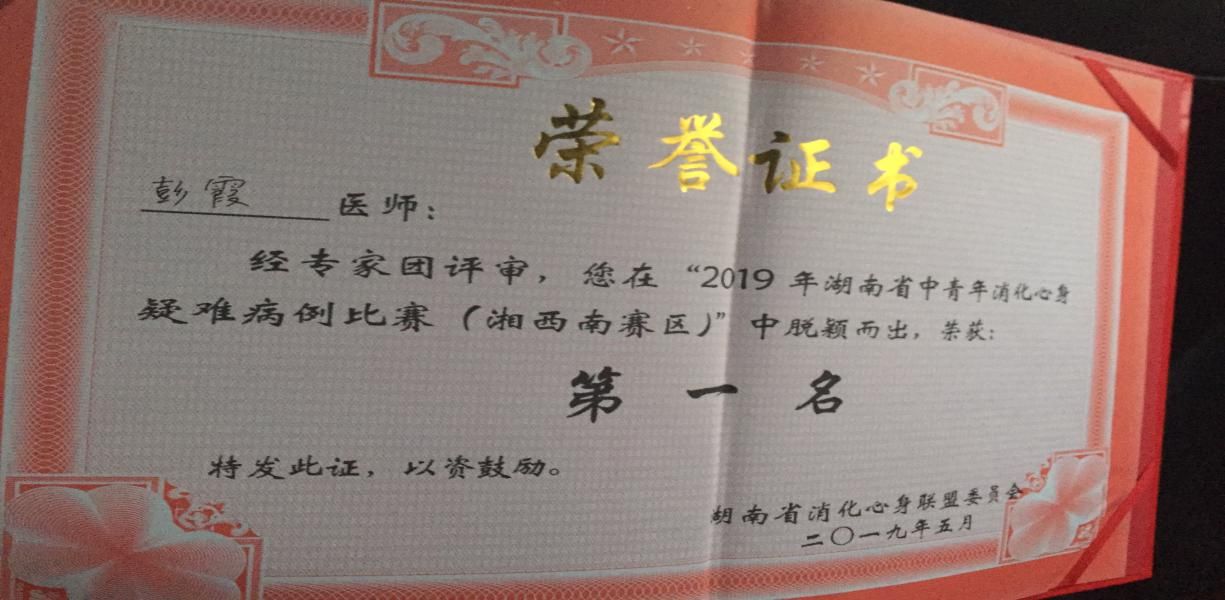 荣誉证书
彭霞 医师：
经专家团评审，您在“2019年湖南省中青年消化心身
疑难病例比赛（湘西南赛区）”中脱颖而出，荣获：
第一名
特发此证，以资鼓励。
湖南省消化心身联盟委员会
二〇一九年五月